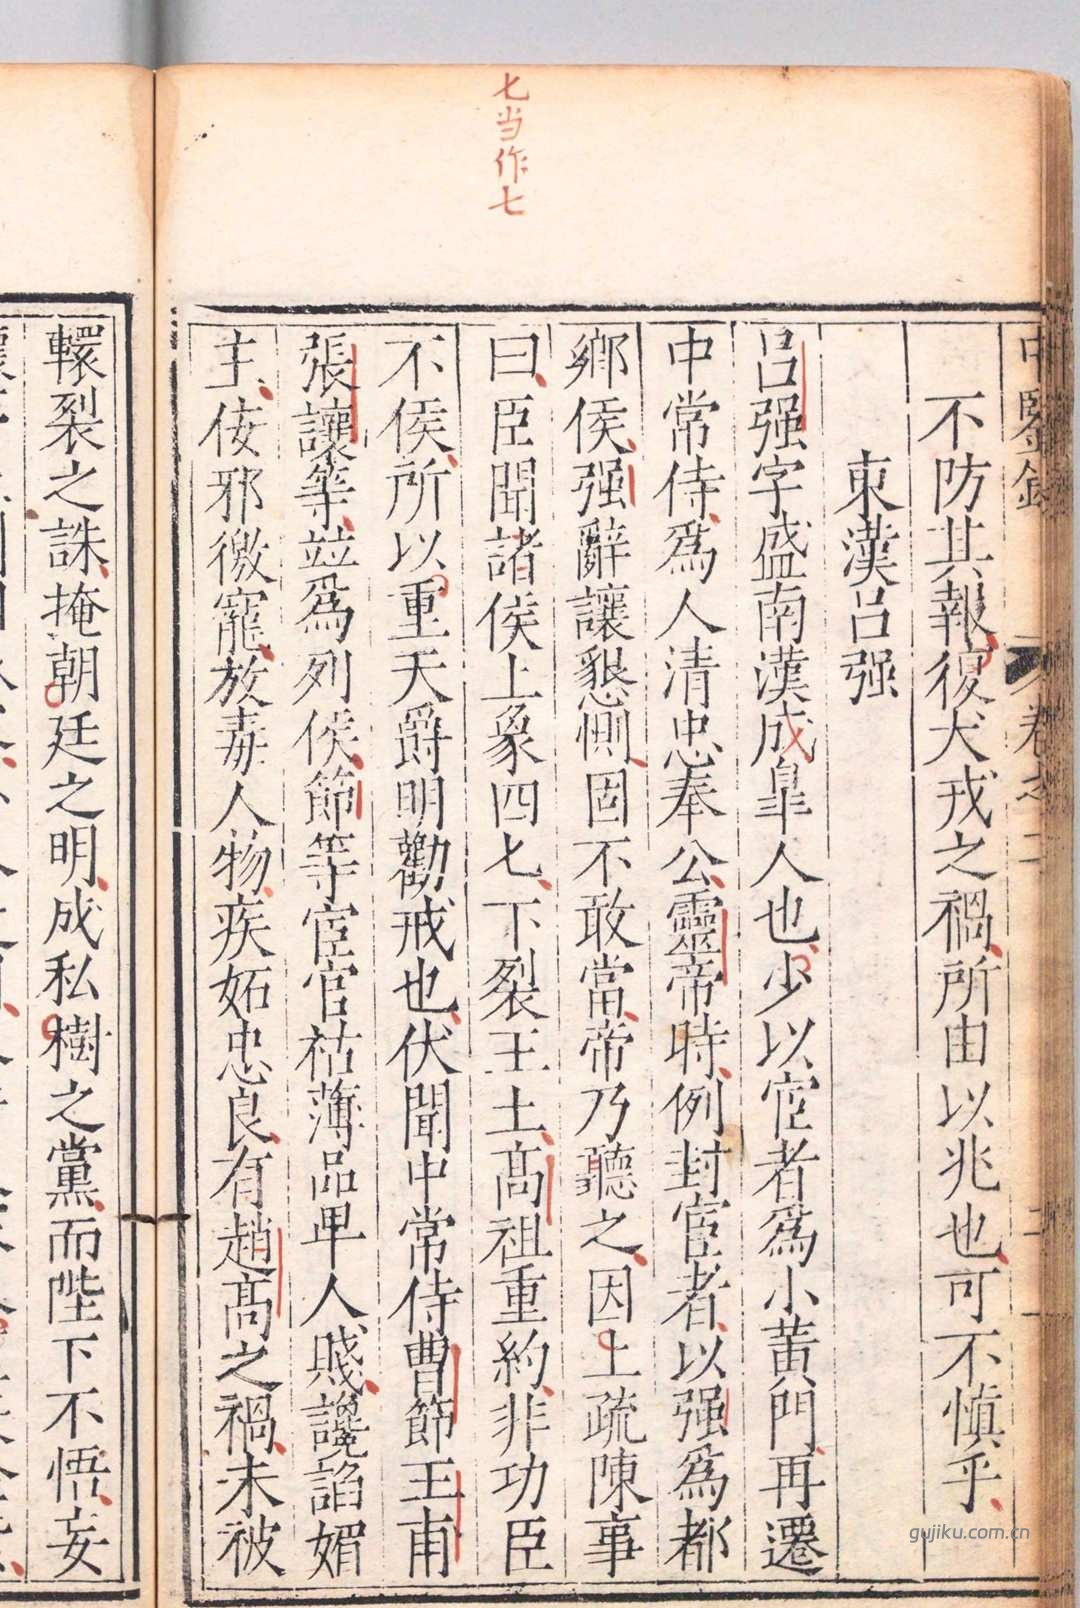 七当作七
中鑒錄
卷之二
不防其報復犬戎之禍所由以兆也可不慎乎
東漢呂强
呂强字盛南漢成皐人也少以宦者爲小黃門再遷
中常侍爲人清忠奉公靈帝時例封宦者以强爲都
鄉侯强辭讓懇惻固不敢當帝乃聽之因上疏陳事
曰臣聞諸侯上象四七下裂王土高祖重約非功臣
不侯所以重天爵明勸戒也伏聞中常侍曹節王甫
張讓等並爲列侯節等宦官祜薄品卑人賤讒諂媚
主佞邪徼寵放毒人物疾妬忠良有趙高之禍未被
轘裂之誅掩朝廷之明成私樹之黨而陛下不悟妄
gujiku.com.cn